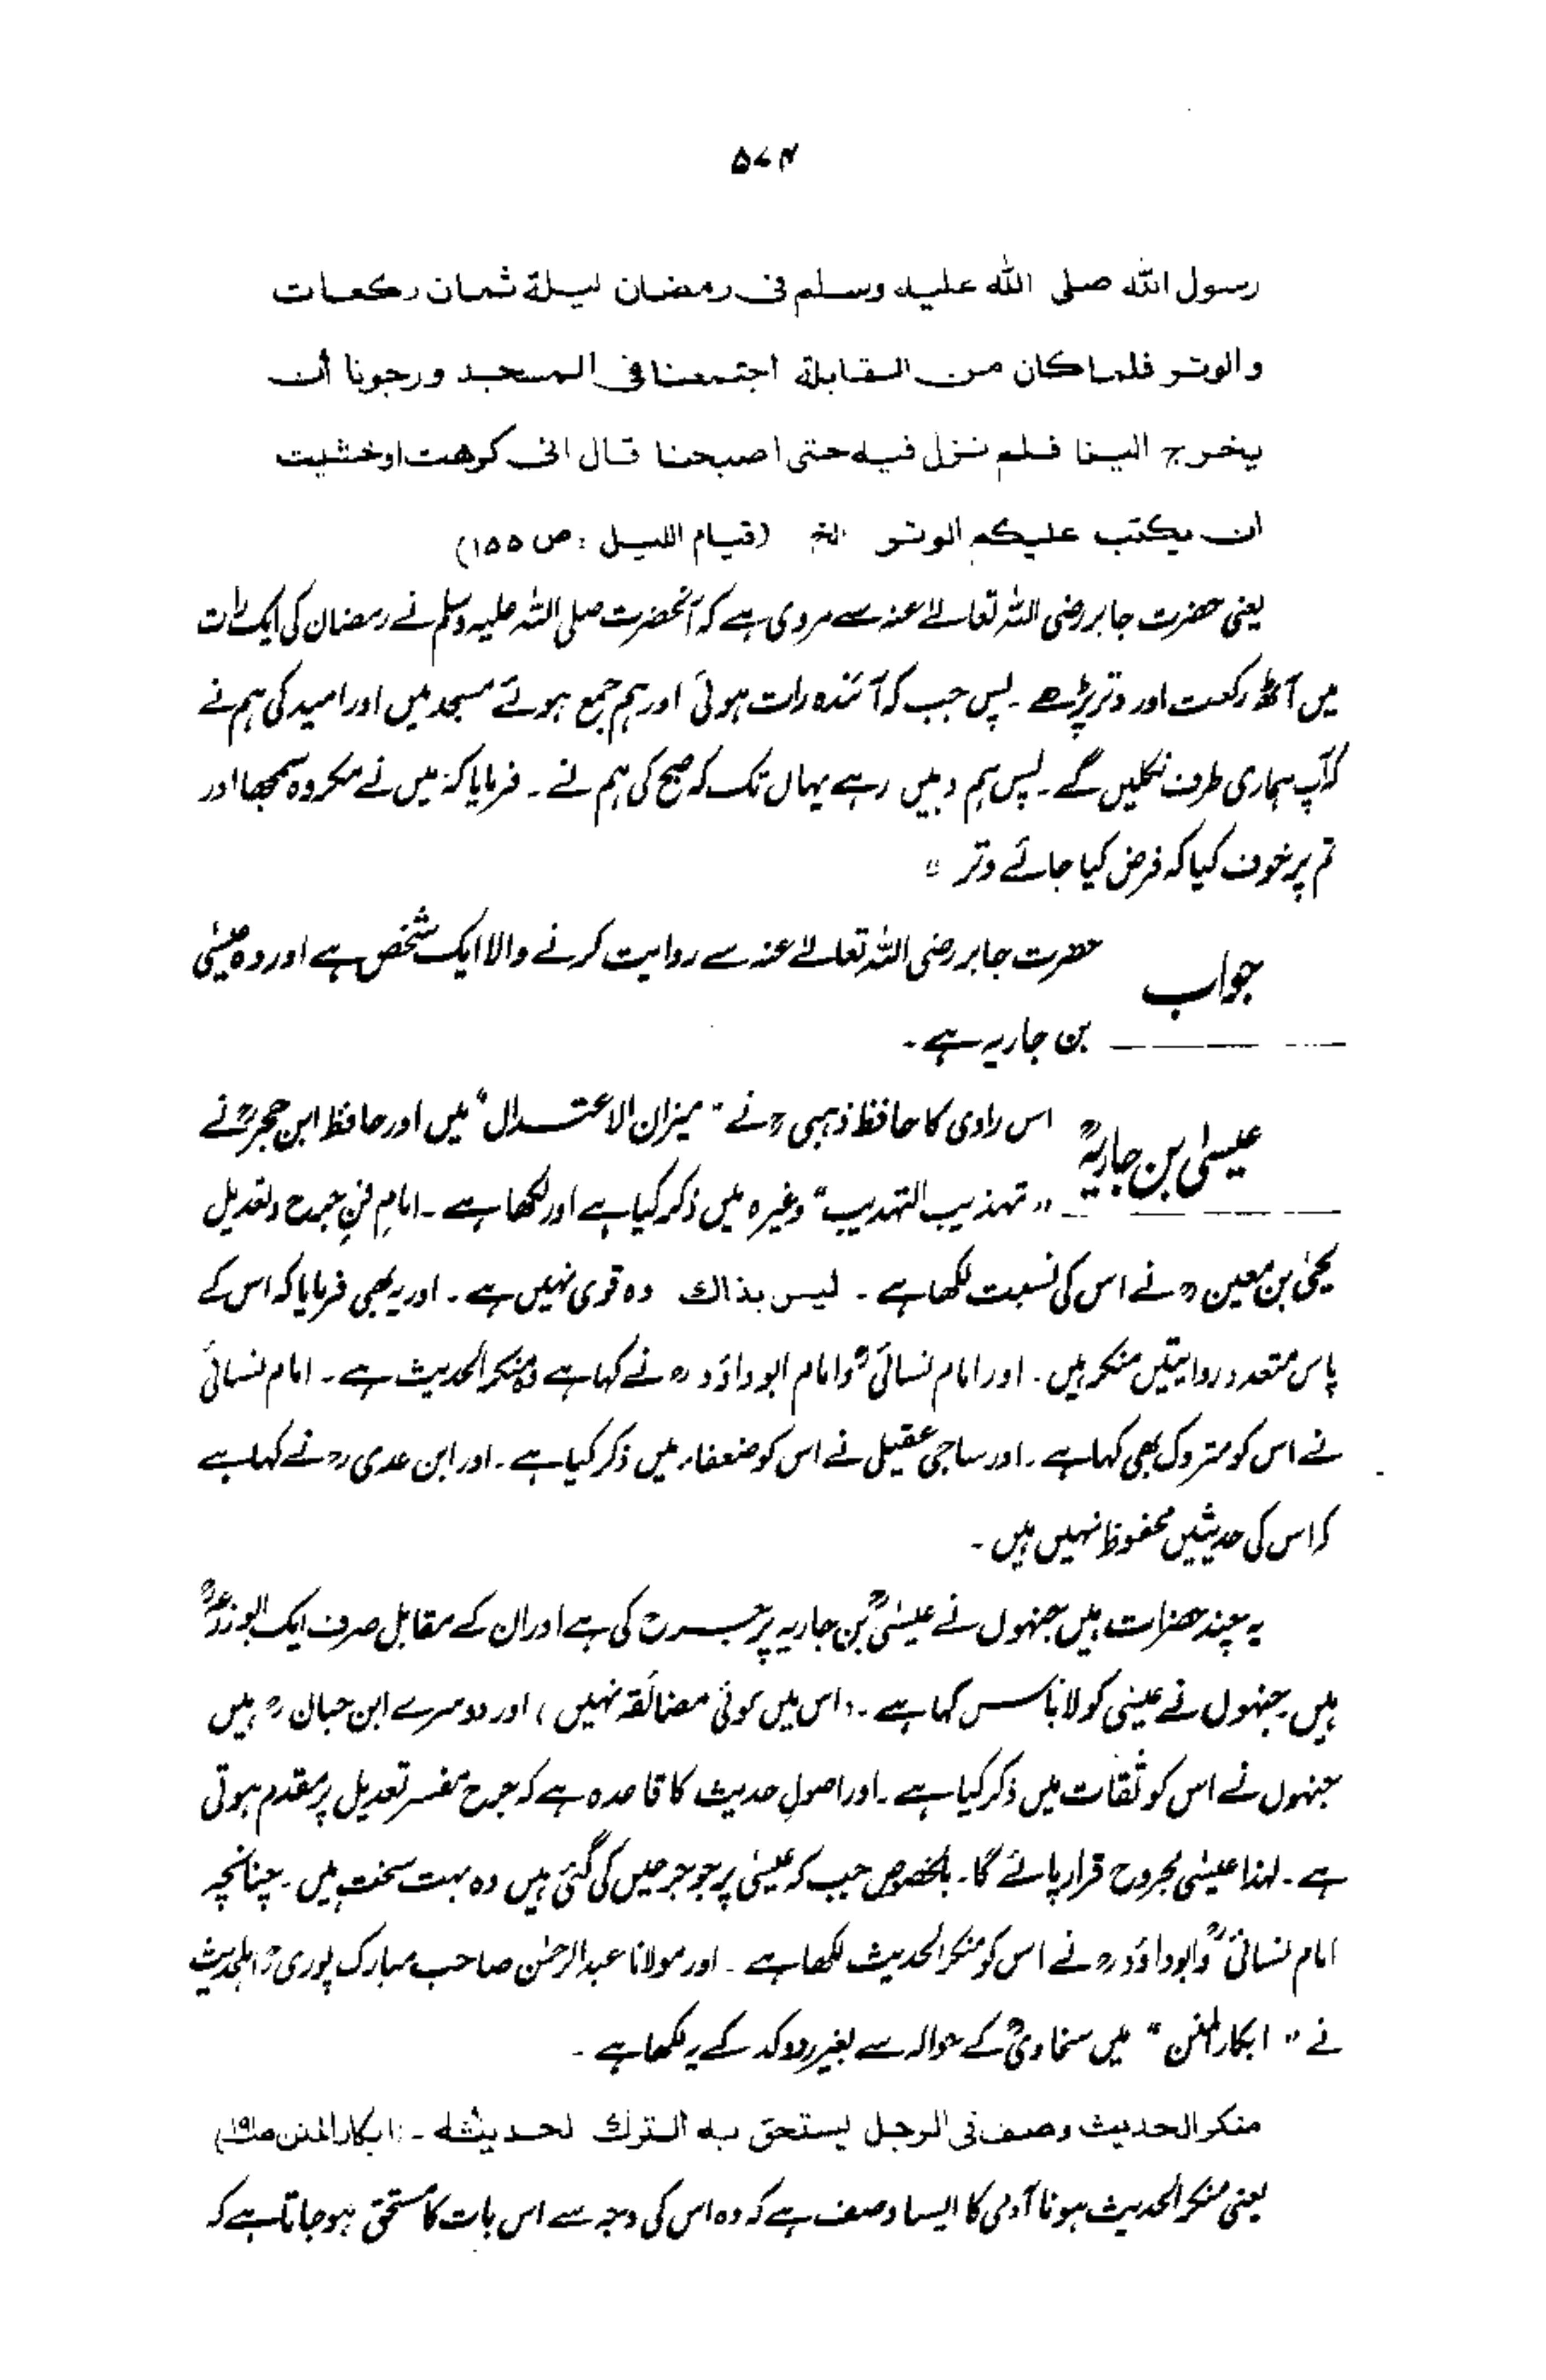 ۵۷۴
رسول اللہ صلی اللہ علیہ وسلم فی رمضان لیلۃ ثمان رکعات
والوتر فلما کان من القابلۃ اجتمعنا فی المسجد ورجونا أن
یخرج الینا فلم نزل فیہ حتی اصبحنا قال انی کرھت اوخشیت
ان یکتب علیکم الوتر الخ (قیام اللیل : ص ۱۵۵)
یعنی حضرت جابر رضی اللہ تعالےٰ عنہ سے مروی ہے کہ آنحضرت صلی اللہ علیہ وسلم نے رمضان کی ایک رات
میں آٹھ رکعت اور وتر پڑھے ۔ پس جب کہ آئندہ رات ہوئی اور ہم جمع ہوئے مسجد میں اور امید کی ہم نے
کہ آپ ہماری طرف نکلیں گے ۔ پس ہم وہیں رہے یہاں تک کہ صبح کی ہم نے ۔ فرمایا کہ میں نے مکروہ سمجھا اور
تم پر خوف کیا کہ فرض کیا جائے وتر "
جواب حضرت جابر رضی اللہ تعالےٰ عنہ سے روایت کرنے والا ایک شخص ہے اور وہ عیسیٰ
بن جاریہ ہے ۔
عیسیٰ بن جاریہؒ اس راوی کا حافظ ذہبیؒ نے "میزان الاعتدال" میں اور حافظ ابن حجرؒ نے
"تہذیب التہذیب" وغیرہ میں ذکر کیا ہے اور لکھا ہے ۔ امامِ فنِ جرح وتعدیل
یحییٰ بن معینؒ نے اس کی نسبت لکھا ہے ۔ لیس بذاك وہ قوی نہیں ہے ۔ اور یہ بھی فرمایا کہ اس کے
پاس متعدد روایتیں منکر ہیں ۔ اور امام نسائیؒ وامام ابوداؤدؒ نے کہا ہے وہ منکر الحدیث ہے ۔ امام نسائیؒ
نے اس کو متروک بھی کہا ہے ۔ اور ساجی عقیلی نے اس کو ضعفاء میں ذکر کیا ہے ۔ اور ابن عدیؒ نے کہا ہے
کہ اس کی حدیثیں محفوظ نہیں ہیں ۔
یہ چند حضرات ہیں جنہوں نے عیسیٰؒ بن جاریہ پر جرح کی ہے اور ان کے مقابل صرف ایک ابوزرعہؒ
ہیں جنہوں نے عیسٰی کو لا بأس کہا ہے ۔ (اس میں کوئی مضائقہ نہیں) اور دوسرے ابن حبانؒ ہیں
جنہوں نے اس کو ثقات میں ذکر کیا ہے ۔ اور اصولِ حدیث کا قاعدہ ہے کہ جرح مفسر تعدیل پر مقدم ہوتی
ہے ۔ لہذا عیسٰی مجروح قرار پائے گا ۔ بالخصوص جب کہ عیسیٰ پر جو جرحیں کی گئی ہیں وہ بہت سخت ہیں ۔ چنانچہ
امام نسائیؒ وابوداؤدؒ نے اس کو منکر الحدیث لکھا ہے ۔ اور مولانا عبدالرحمٰن صاحب مبارک پوریؒ اہلحدیث
نے "ابکار المنن" میں سخاویؒ کے حوالہ سے بغیر ردوکد کے یہ لکھا ہے ۔
منکر الحدیث وصف فی الرجل یستحق بہ الترك لحدیثہ ۔ (ابکار المنن ص۱۹۱)
یعنی منکر الحدیث ہونا آدمی کا ایسا وصف ہے کہ وہ اس کی وجہ سے اس بات کا مستحق ہوجاتا ہے کہ